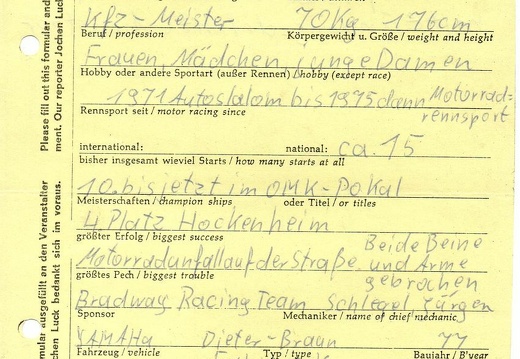 Kfz-Meister 70Kg 176cm
Beruf / profession Körpergewicht u. Größe / weight and height
Frauen, Mädchen, junge Damen
Hobby oder andere Sportart (außer Rennen) / hobby (except race)
1971 Autoslalom bis 1975 dann Motorrad-
rennsport
Rennsport seit / motor racing since
international: national: ca. 15
bisher insgesamt wieviel Starts / how many starts at all
10. bis jetzt im OMK-Pokal
Meisterschaften / champion ships oder Titel / or titles
4. Platz Hockenheim
größter Erfolg / biggest success
Beide Beine
Motorradunfall auf der Straße und Arme
gebrochen
größtes Pech / biggest trouble
Bradway Racing Team Schlegel Jürgen
Sponsor Mechaniker / name of chief mechanic
YAMAHA Dieter-Braun 77
Fahrzeug / vehicle Typ / type Baujahr / B'year
Please fill out this formular and
ment. Our reporter Jochen Luck
mular ausgefüllt an den Veranstalter
Jochen Luck bedankt sich im voraus.